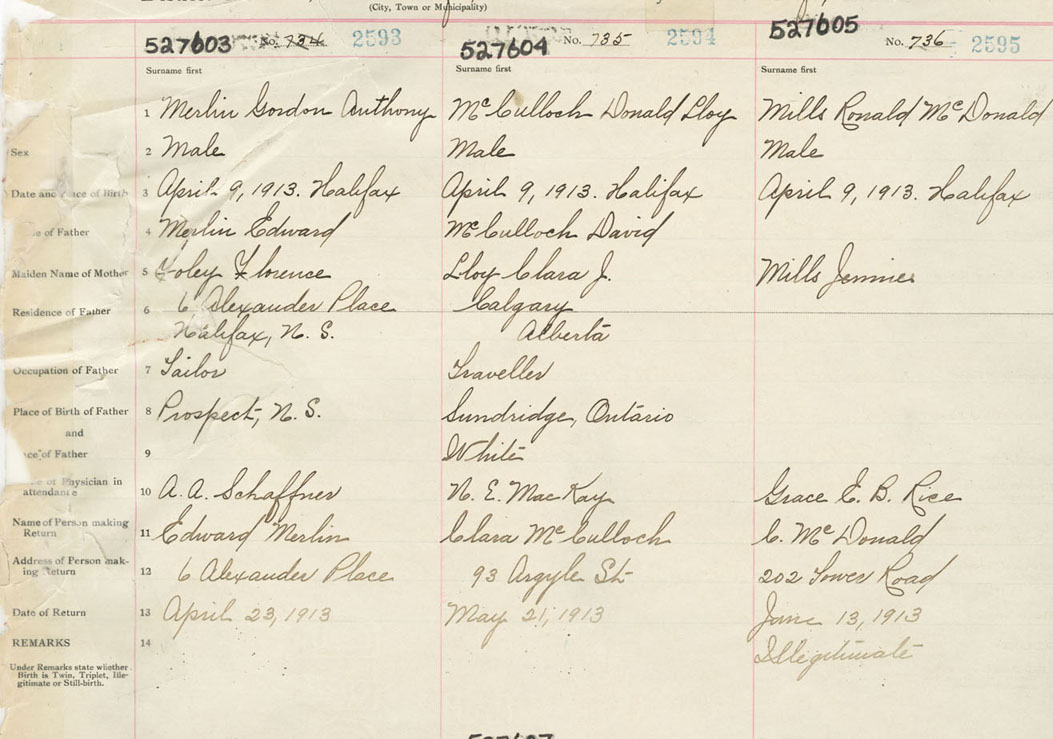 (City, Town or Municipality)
527603 No. 734 2593 527604 No. 735 2594 527605 No. 736 2595
Surname first Surname first Surname first
1 Merlin Gordon Anthony McCulloch Donald Lloy Mills Ronald McDonald
Sex 2 Male Male Male
Date and Place of Birth 3 April 9, 1913. Halifax April 9, 1913. Halifax April 9, 1913. Halifax
of Father 4 Merlin Edward McCulloch David
Maiden Name of Mother 5 Foley Florence Lloy Clara J. Mills Jennie
Residence of Father 6 6 Alexander Place Calgary
Halifax, N. S. Alberta
Occupation of Father 7 Tailor Traveller
Place of Birth of Father 8 Prospect, N. S. Sundridge, Ontario
and
of Father 9 White
of Physician in
attendance 10 A. A. Schaffner N. E. MacKay Grace E. B. Rice
Name of Person making
Return 11 Edward Merlin Clara McCulloch C. McDonald
Address of Person mak-
ing Return 12 6 Alexander Place 93 Argyle St 202 Tower Road
Date of Return 13 April 23, 1913 May 21, 1913 June 13, 1913
REMARKS 14 Illegitimate
Under Remarks state whether
Birth is Twin, Triplet, Ille-
gitimate or Still-birth.